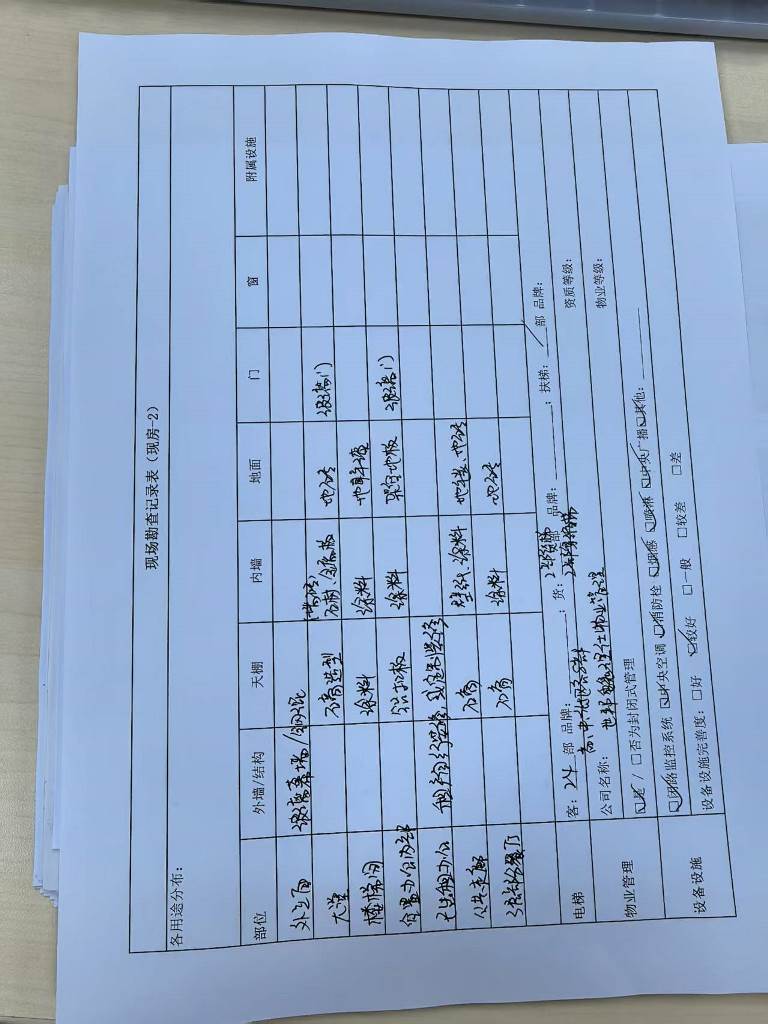 现场勘查记录表（现房-2）
各用途分布：
部位 外墙/结构 天棚 内墙 地面 门 窗 附属设施
外立面 玻璃幕墙/钢混
大堂 石膏造型 石材、金属板 地砖 玻璃门
楼梯间 涂料 涂料
空置办公内部 铝扣板 涂料 架空地板 玻璃门
已出租办公 租户自行装修，或定制装修
公共走廊 石膏 壁纸、涂料 地毯、地砖
石膏 涂料 地砖
电梯 客：24 部 品牌： ；货：2部 品牌： ；扶梯： / 部 品牌：
物业管理 公司名称： 物业管理 资质等级：
☑是 / □否为封闭式管理 物业等级：
设备设施 ☑闭路监控系统 ☑中央空调 ☑消防栓 ☑烟感 ☑喷淋 ☑中央广播 ☑其他：
设备设施完善度：□好 ☑较好 □一般 □较差 □差